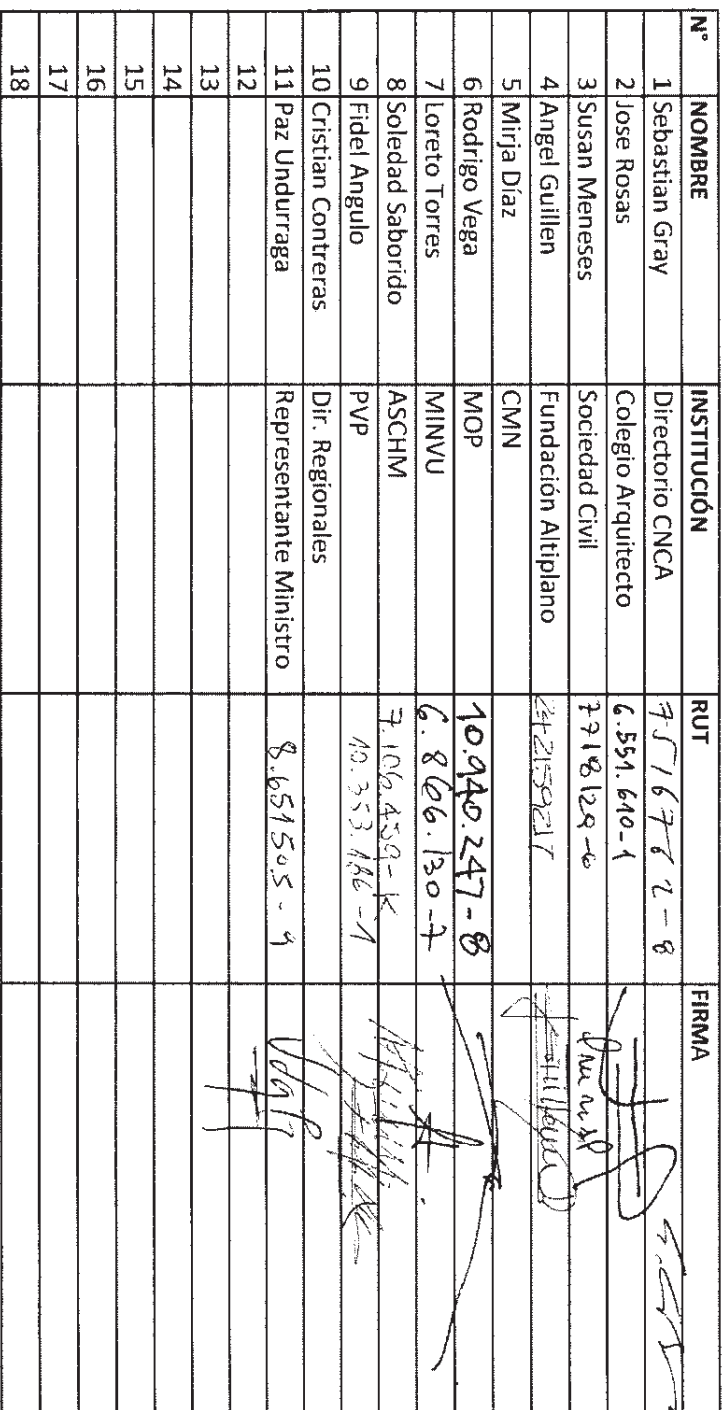 N° NOMBRE INSTITUCIÓN RUT FIRMA
1 Sebastian Gray Directorio CNCA
2 Jose Rosas Colegio Arquitecto 6.551.610-1
3 Susan Meneses Sociedad Civil 7718129-6
4 Angel Guillen Fundación Altiplano
5 Mirja Díaz CMN
6 Rodrigo Vega MOP 10.940.247-8
7 Loreto Torres MINVU 6.866.130-7
8 Soledad Saborido ASCHM
9 Fidel Angulo PVP 10.353.186-1
10 Cristian Contreras Dir. Regionales
11 Paz Undurraga Representante Ministro 8.651505-9
12
13
14
15
16
17
18